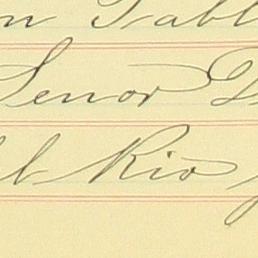 n Tabl
Senor D
l Rio y